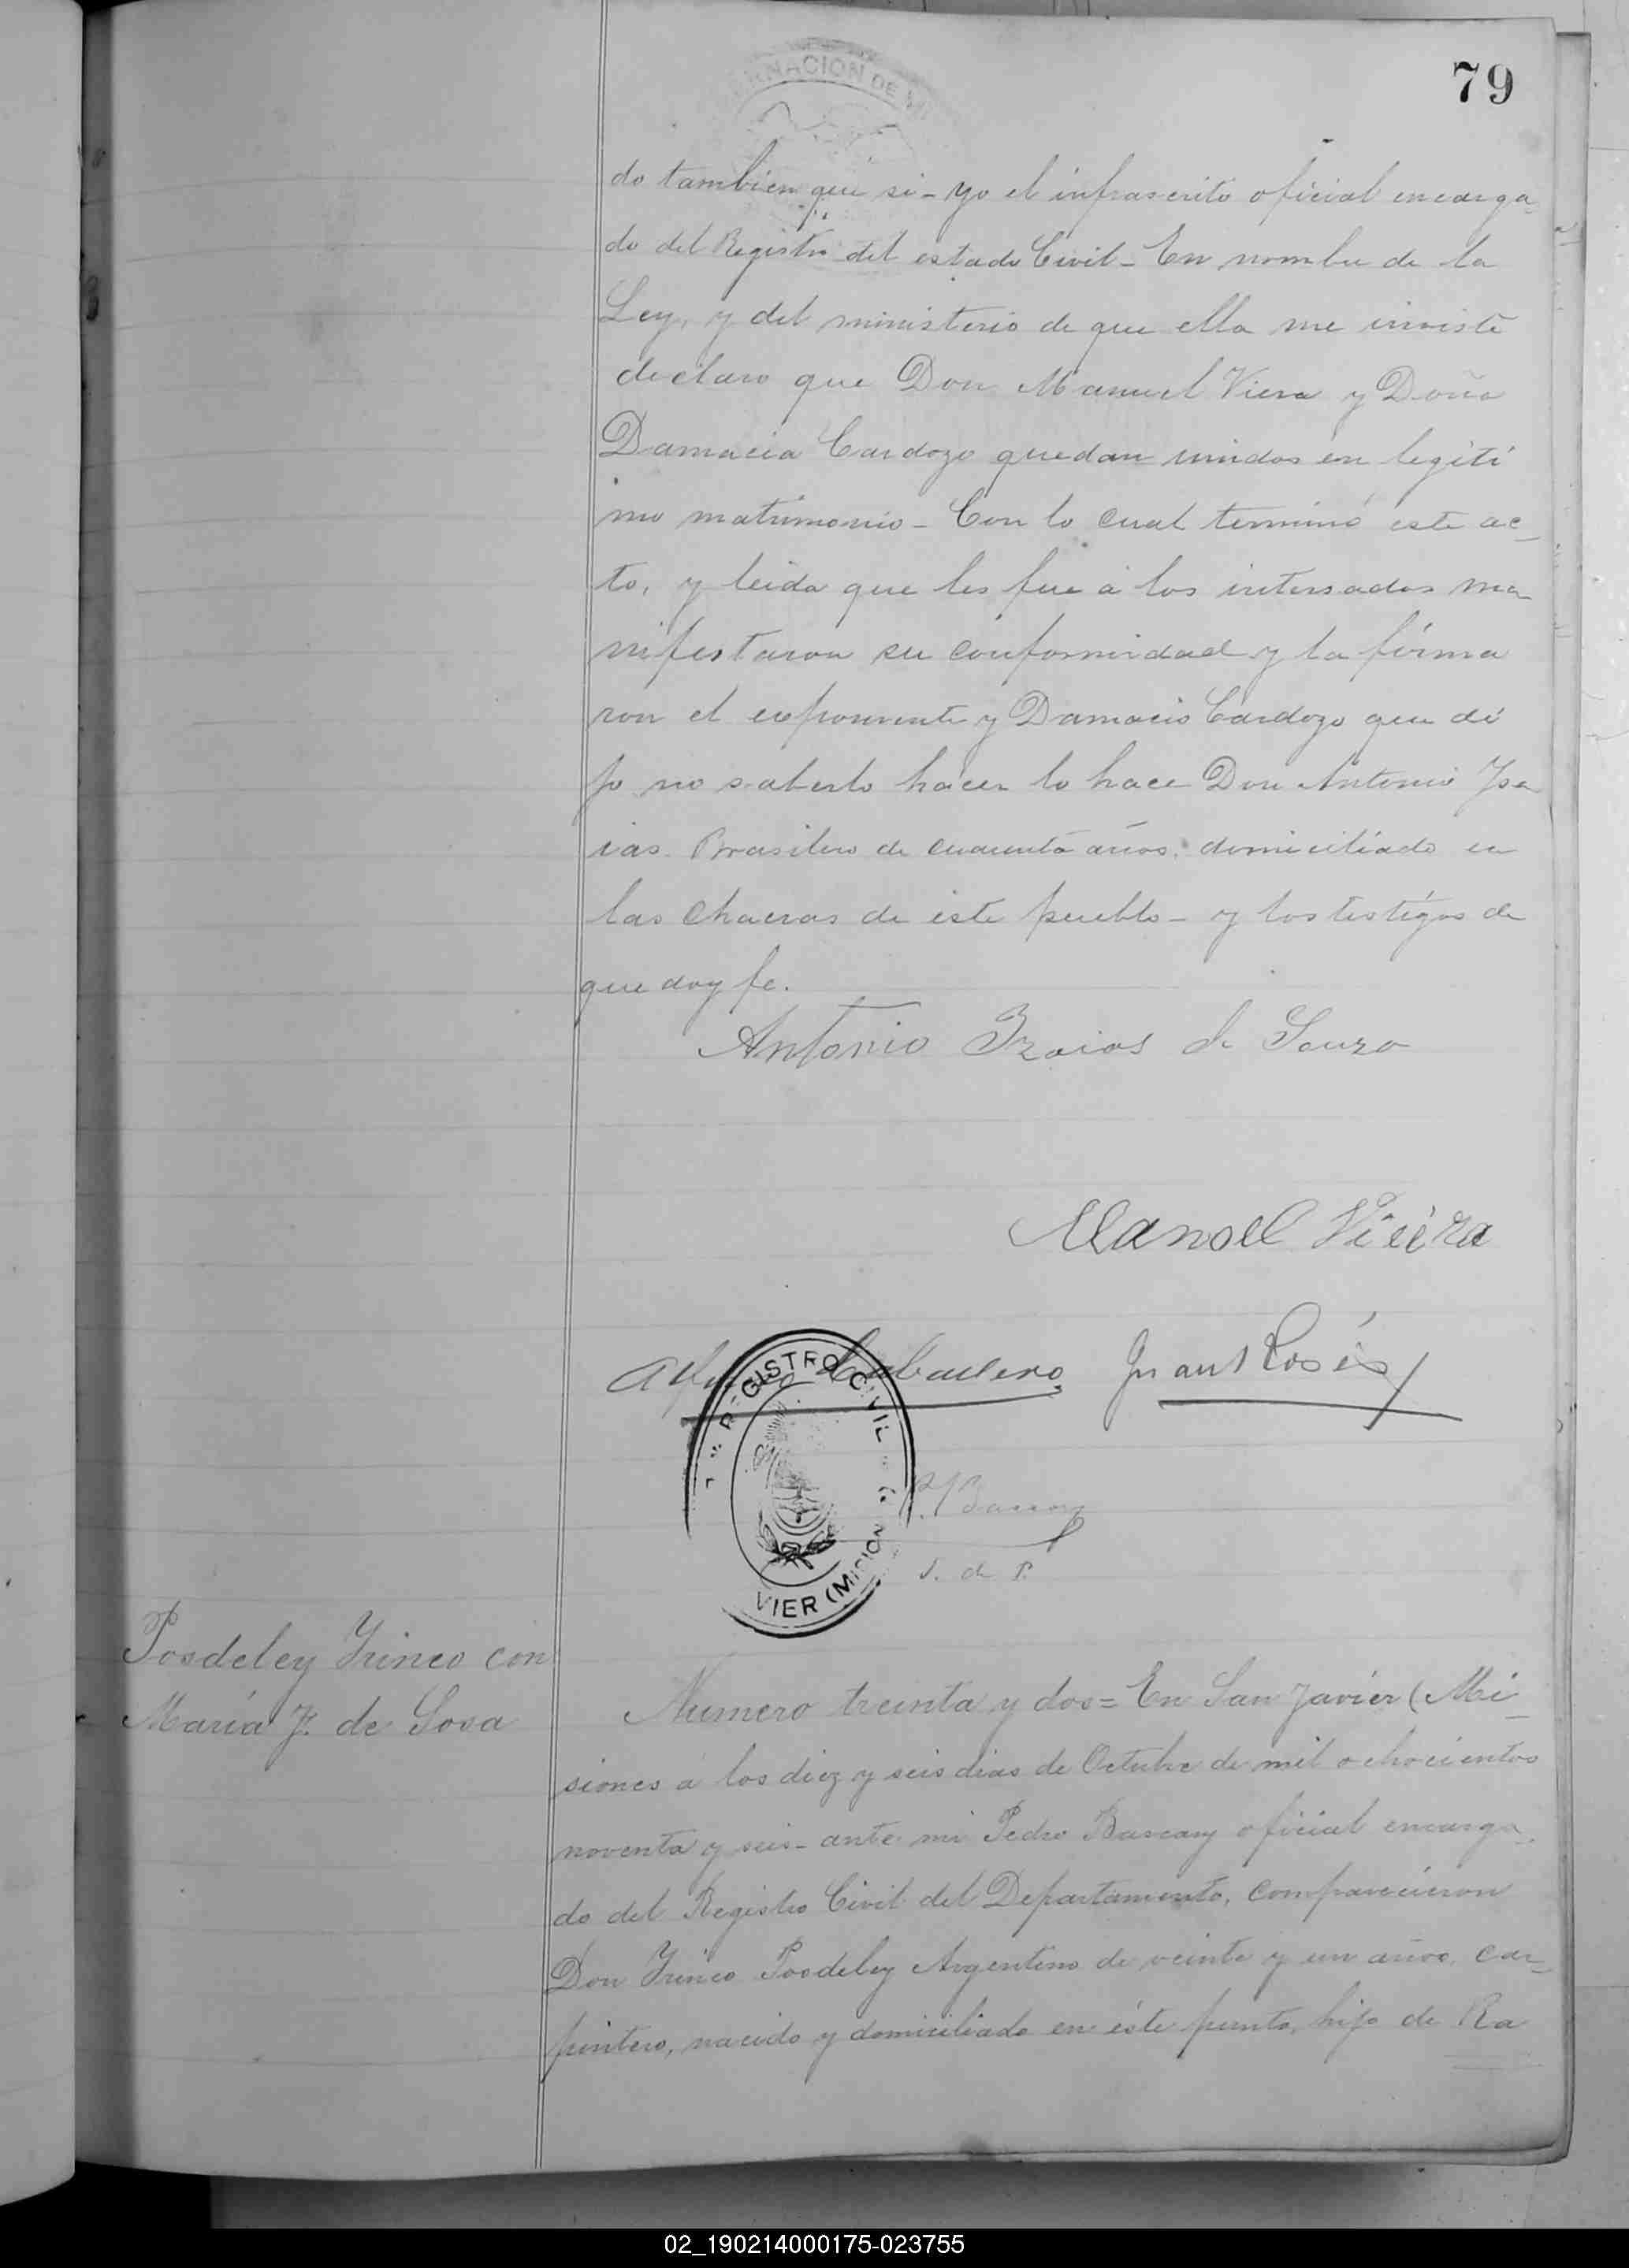 79
RNACION DE MI
do tambien que si - Yo el infrascrito oficial encarga
do del Registro del estado Civil - En nombre de la
Ley, y del ministerio de que ella me inviste
declaro que Don Manuel Viera y Doña
Damacia Cardozo quedan unidos en legiti
mo matrimonio - Con lo cual terminó este ac-
to, y leida que les fue á los intersados ma
nifestaron su conformidad y la firma
ron el exponente y Damacio Cardozo que di
jo no saberlo hacer lo hace Don Antonio Ysa
ias Brasilero de cuarenta años domiciliado en
las Chacras de este pueblo - y los testigos de
que doy fe.
Antonio Izaias de Souza
Manoel Vieira
Caballero Juan
REGISTRO CIVIL
VIER (MISION
P. Bascary
J. de P.
Posdeley Yrineo con
María J. de Sosa
Numero treinta y dos = En San Javier (Mi-
siones á los diez y seis dias de Octubre de mil ochocientos
noventa y seis - ante mi Pedro Bascary oficial encarga
do del Registro Civil del Departamento, comparecieron
Don Yrineo Posdeley Argentino de veinte y un años, car-
pintero, nacido y domiciliado en éste punto, hijo de Ra
02_190214000175-023755